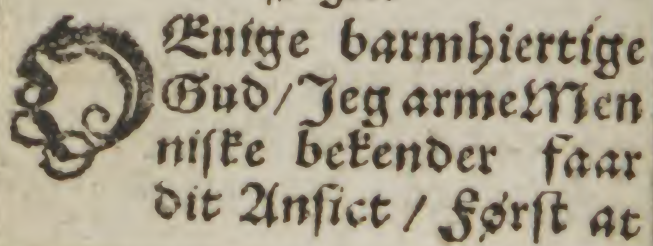 O Euige barmhiertige
Gud/ Jeg arme Men
niske bekender faar
dit Ansict / Først at